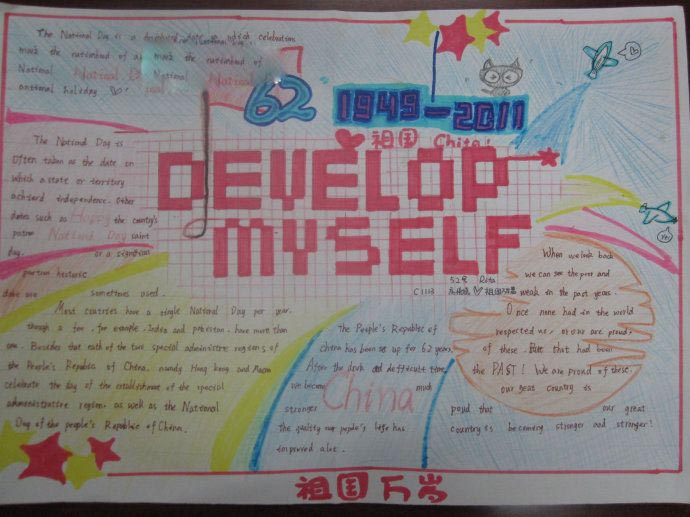 The National Day is a designated date on which celebration
mark the nationhood of a mark the nationhood of
National National Day National National
national holiday
62
1949-2011
祖国 China!
DEVELOP
MYSELF
The National Day is
Often taken as the date on
which a state or territory
achieved independence. Other
dates such as Happy the country's
patron National Day saint
day. or a signifition
historic
date are sometimes used.
52号 Rita
C1113 祖国
Most countries have a single National Day per year,
though a few, for example, India and pakistan, have more than
one. Besides that each of the two special administre regions of
the People's Republic of China, namely Hong Kong and Macao
celebrate the day of the establishment of the special
administrative region, as well as the National
Day of the people's Republic of China.
The People's Republic of
china has been set up for 62 years.
After the and deffucult time,
we became much
stronger China
The quality our people's life has
improved a lot.
When we look back
we can see the poor and
weak in the past years.
Once none had in the world
respected us, or our are proud,
of these. But that had been
the PAST! We are proud of these.
our great country is
proud that our great
country is becoming stronger and stronger!
Yes!
祖国万岁